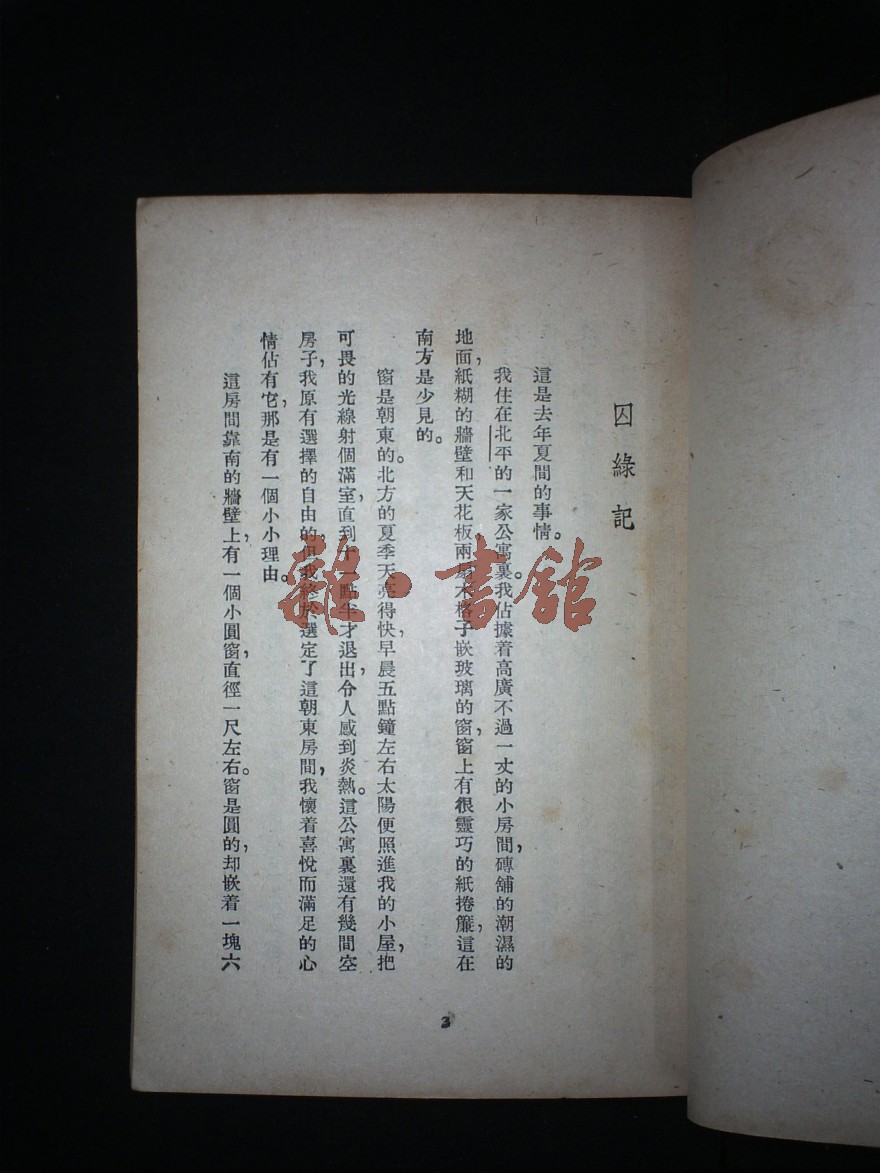 囚綠記
這是去年夏間的事情。
我住在北平的一家公寓裏。我佔據着高廣不過一丈的小房間，磚舖的潮濕的
地面，紙糊的牆壁和天花板，兩扇木格子嵌玻璃的窗，窗上有很靈巧的紙捲簾，這在
南方是少見的。
窗是朝東的。北方的夏季天亮得快，早晨五點鐘左右太陽便照進我的小屋，把
可畏的光線射個滿室，直到十一點半才退出，令人感到炎熱。這公寓裏還有幾間空
房子，我原有選擇的自由的，但我終於選定了這朝東房間，我懷着喜悅而滿足的心
情佔有它，那是有一個小小理由。
這房間靠南的牆壁上，有一個小圓窗，直徑一尺左右。窗是圓的，却嵌着一塊六
3
雜·書館